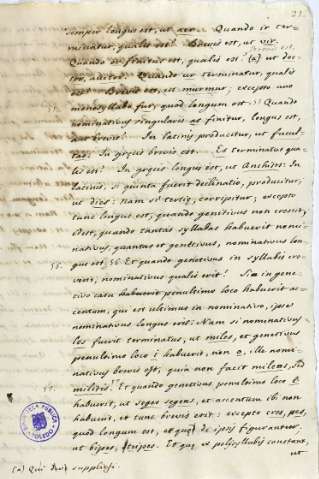 21.
semper longus est, ut aer. Quando ir ter-
minatur, qualis est? Brevis est, ut vir.
Quando or finitus est, qualis est? (a) ut doc-
tor, auditor. Quando ur terminatur, qualis
est? Brevis est, ut murmur; excepto uno
monosyllabo fur, quod longum est. Quando
nominativus singularis as finitur, longus est,
aut brevis? In latinis producitur, ut facul-
tas: In grecis brevis est. Es terminatus qua-
lis est? In grecis longus est, ut Anchises: In
latinis, si quinta fuerit declinatio, producitur,
ut dies: Nam si tertia, corripitur, excepto
tunc longus est, quando genitivus non crescit,
idest, quando tantas syllabas habuerit nomi-
nativus, quantas et genitivus, nominativus lon-
gus est. Et quando genitivus in syllabis cre-
55.
verit, nominativus qualis erit? Si in geni-
tivo casu habuerit penultimo loco habuerit ac-
centum, qui est ultimus in nominativo, ipse
nominativus longus erit: Nam si nominativus
es fuerit terminatus, ut miles, et genitivus
penultimo loco i habuerit, non e, ille nomi-
nativus brevis est, quia non facit miletis, sed
militis. Et quando genitivus penultimo loco e
habuerit, ut seges segetis, et accentum ibi non
habuerit, et tunc brevis erit: excepto cres, pes,
quod longum est, et que de ipsis figurantur,
ut bipes, tripes. Et que ex polysyllabis constant,
ut
(a) suppliesi.
BIBLIOTECA PUBLICA
TOLEDO